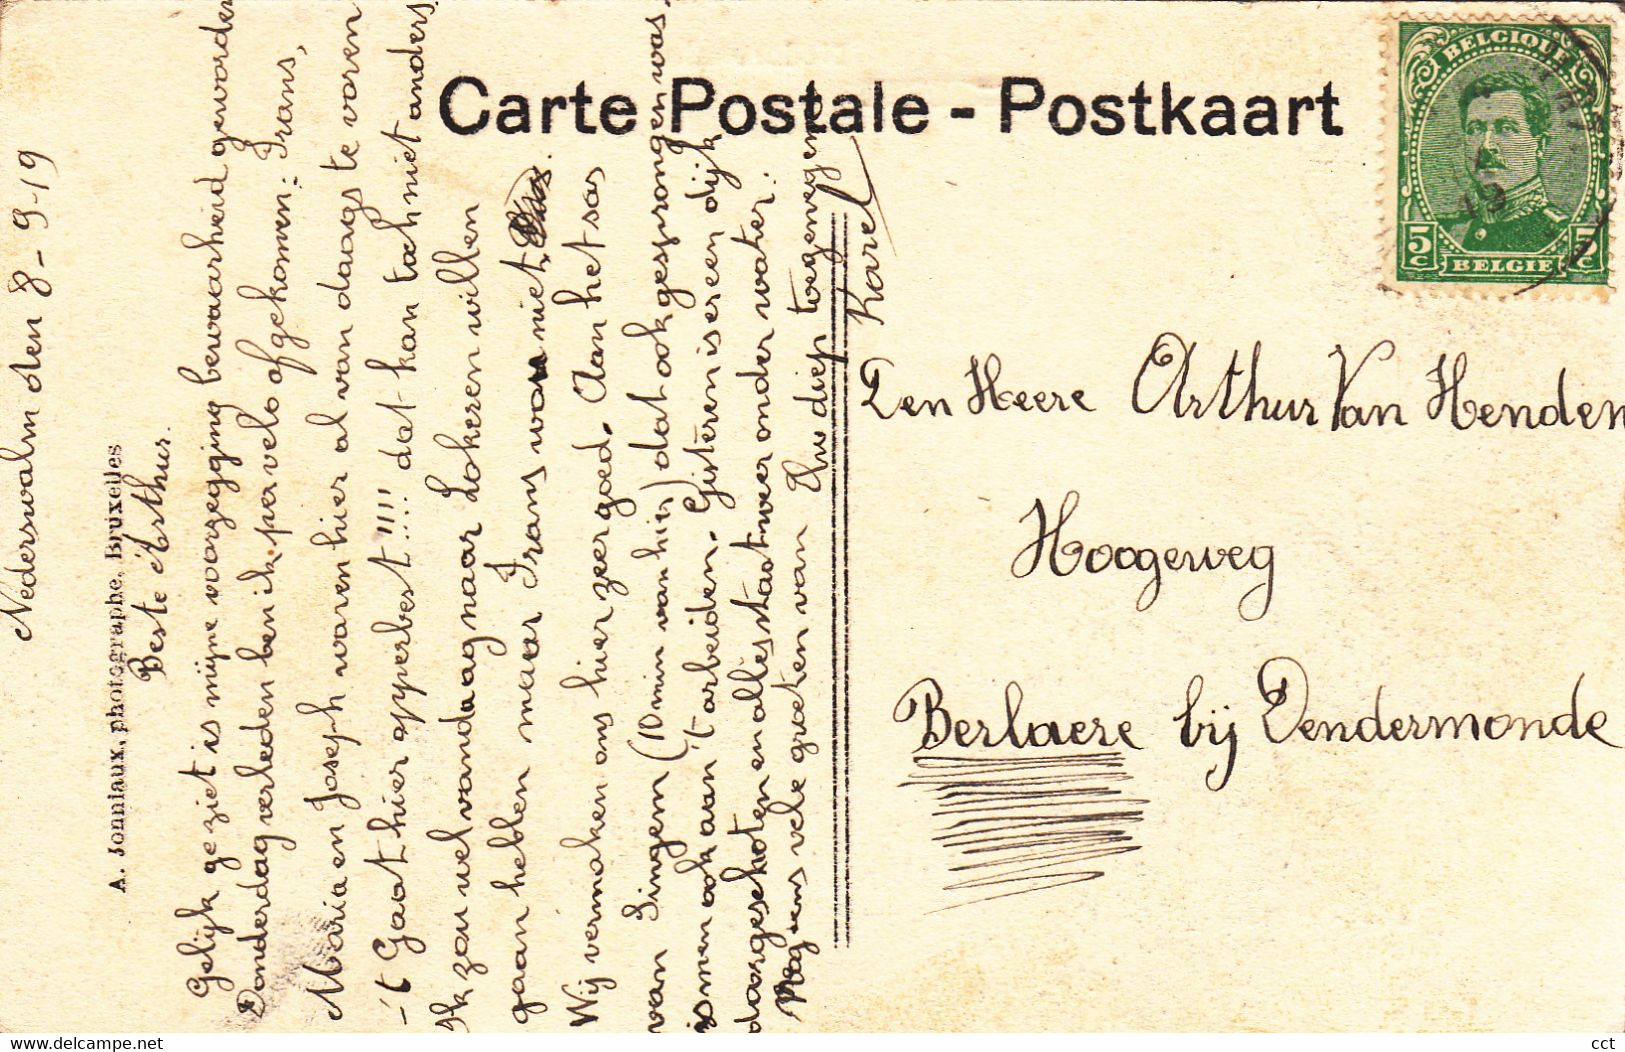 Carte Postale - Postkaart
BELGIQUE
5 c
5 c
BELGIE
A. Jonniaux, photographe, Bruxelles
Nederswalm den 8-9-19
Beste Arthur.
Gelijk ge ziet is mijne voorzegging bewaarheid geworden
Donderdag verleden ben ik per velo afgekomen: Frans,
Maria en Joseph waren hier al van daags te voren
-'t Gaat hier opperbest!!!! dat kan toch niet anders.
Ik zou wel vandaag naar Lokeren willen
gaan hebben maar Frans wou niet.
Wij vermaken ons hier zeer goed. Aan het sas
van Singem (10 min van hier) dat ook gesprongen was.
is men ook aan 't arbeiden. Gisteren is er een dijk
doorgeschoten en alles staat weer onder water.
Nog eens vele groeten van Uw diep toegenegen
Karel
Den Heere Arthur Van Henden
Hoogeweg
Berlaere bij Dendermonde
https://www.delcampe.net
cct